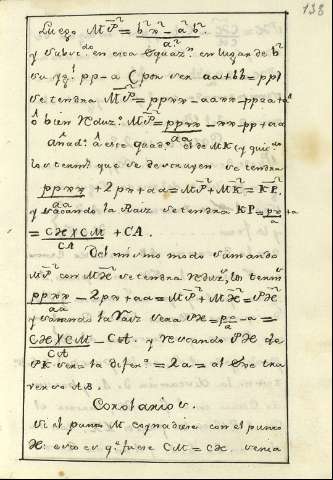 138
Luego MP² = b²x² - a²b² / a²
y subst.do en esta equaz.n en lugar de b²
su ig.l pp - a² (por ser aa + bb = pp)
se tendra MP² = ppxx - aaxx - ppaa + a⁴ / aa
ô bien reduz.º MP² = ppxx / aa - xx - pp + aa
añad.º â este quad.º el de MK (y qui.do
los termin.s que se destruyen se tendra
ppxx / aa + 2px + aa = MP² + MK² = KP²,
y sacando la Raiz se tendra KP = px / a + a
= CH × CM / CA + CA.
Del mismo modo sumando
MP² con MH² se tendra reduz.º los termin.s
ppxx / aa - 2px + aa = MP² + MH² = PH²
y sacando la raiz sera PH = px / a - a =
CH × CM / CA - CA. y restando PH de
PK sera la difer.ª = 2a = al
verso AB.
Corolario
Si el punto M coincidiere con el punto
H: esto es q.e fuese CM = CH, seria